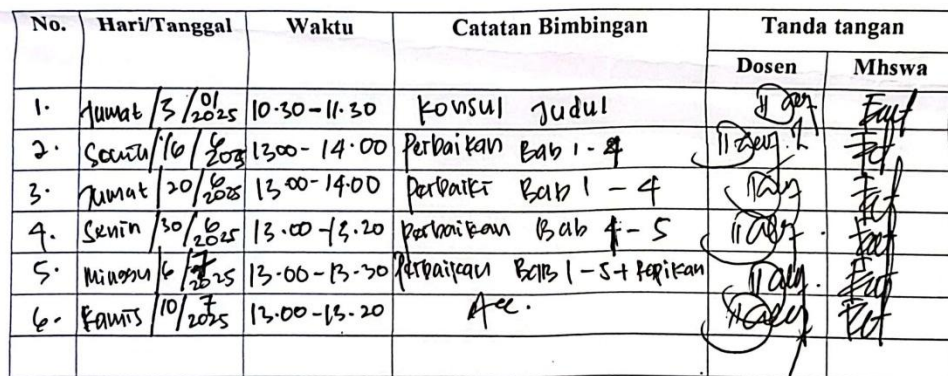 No. Hari/Tanggal Waktu Catatan Bimbingan Tanda tangan
Dosen Mhswa
1. Jumat /3 /01/2025 10.30-11.30 Konsul Judul
2. /16 / 6/2025 1300 - 14.00 Perbaikan Bab 1 - 4
3. Jumat /20 /6/2025 13.00-14.00 Perbaiki Bab 1 - 4
4. Senin /30 /6/2025 13.00-13.20 Perbaikan Bab 4 - 5
5. Minggu /6 /7/2025 13.00-13.30 Perbaikan Bab 1 - 5 +
6. Kamis /10 /7/2025 13.00-13.20 Acc.